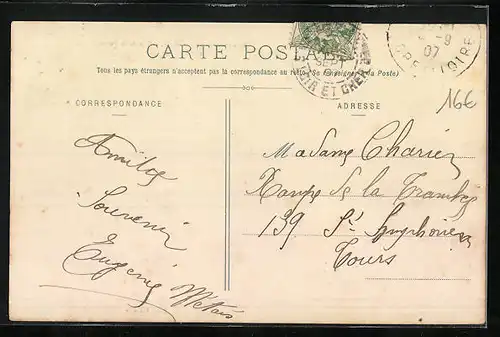 CARTE POSTALE
Tous les pays étrangers n'acceptent pas la correspondance au recto (Se renseigner à la Poste)
CORRESPONDANCE
ADRESSE
SEPT
LOIR ET CHER
-9
07
INDRE-ET-LOIRE
16€
Amitiés
Souvenir
Eugénie Métais
Madame Charier
Rampe de la Tranchée
139 St Symphorien
Tours